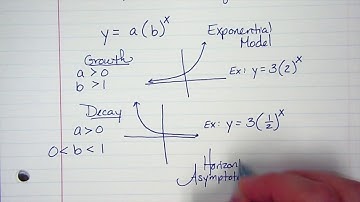 y = a(b)^x Exponential
Model
Growth
a > 0
b > 1
Ex: y = 3(2)^x
Decay
a > 0
0 < b < 1
Ex: y = 3(1/2)^x